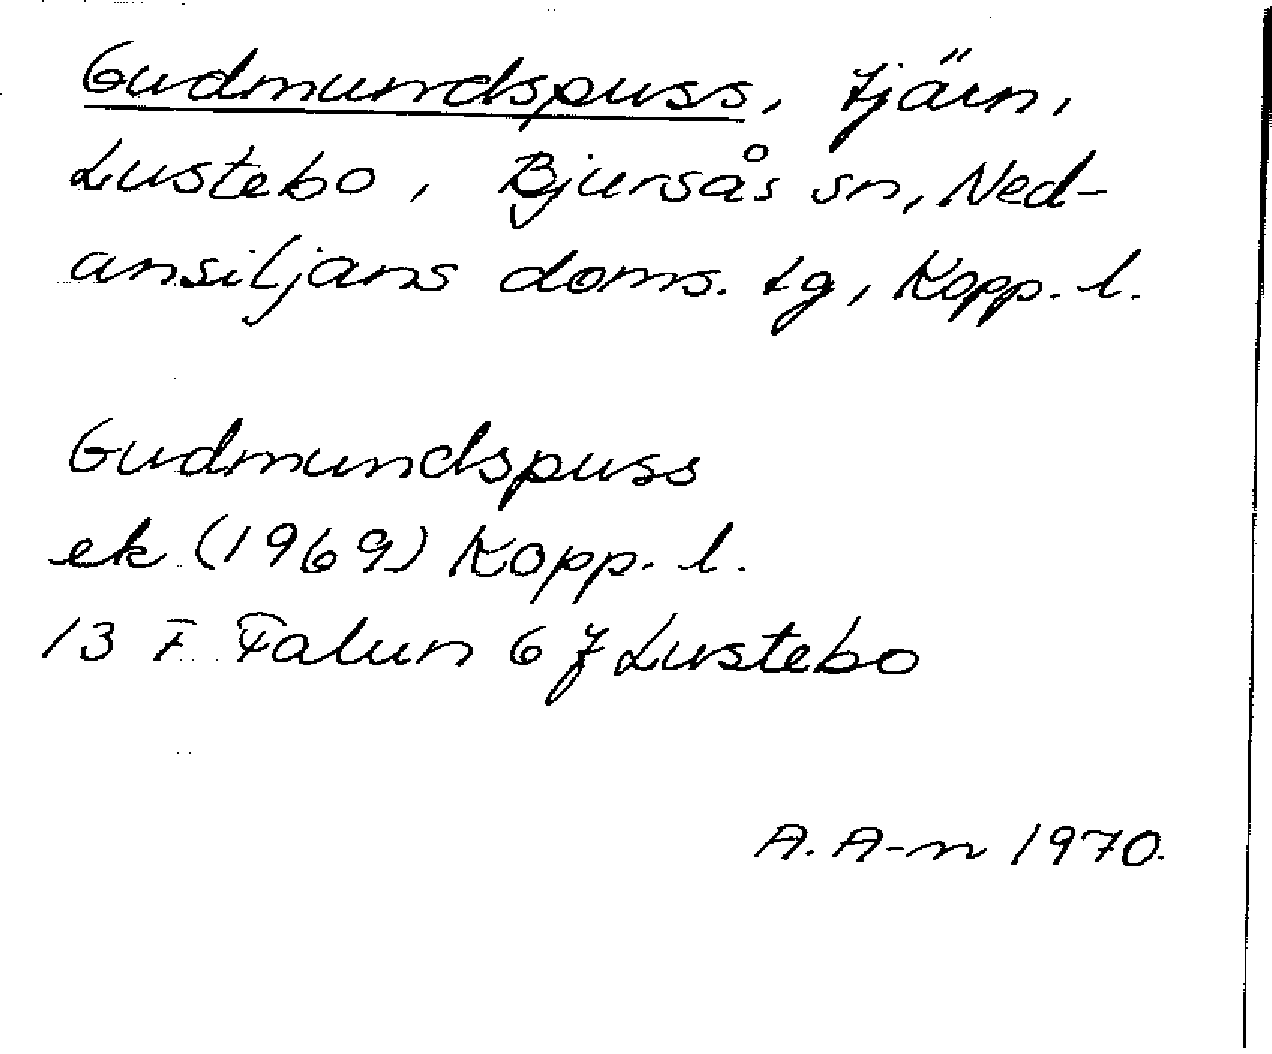 Gudmundspuss, tjärn,
Lustebo, Bjursås sn, Ned-
ansiljans doms. tg, Kopp. l.
Gudmundspuss
ek (1969) Kopp. l.
13 F Falun 6 f Lustebo
A. A-n 1970.